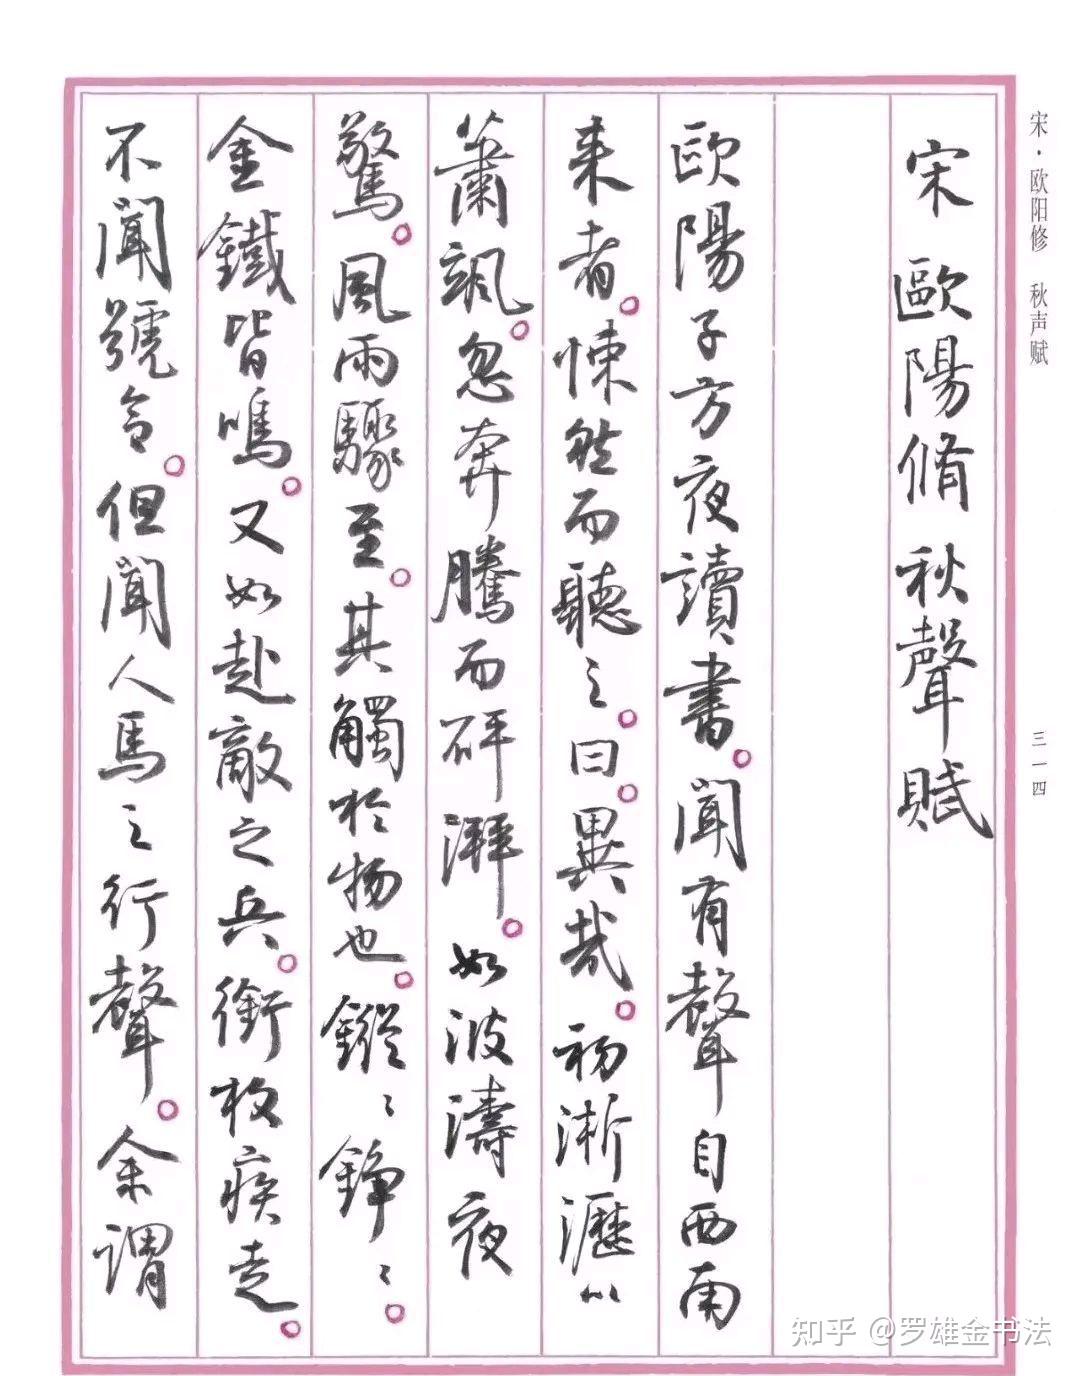 宋·欧阳修 秋声赋
三一四
宋歐陽脩秋聲賦
歐陽子方夜讀書。聞有聲自西南
来者。悚然而聽之。曰。異哉。初淅瀝以
蕭颯。忽奔騰而砰湃。如波濤夜
驚。風雨驟至。其觸於物也。鏦〻錚〻。
金鐵皆鳴。又如赴敵之兵。銜枚疾走。
不聞號令。但聞人馬之行聲。余謂
知乎 @罗雄金书法